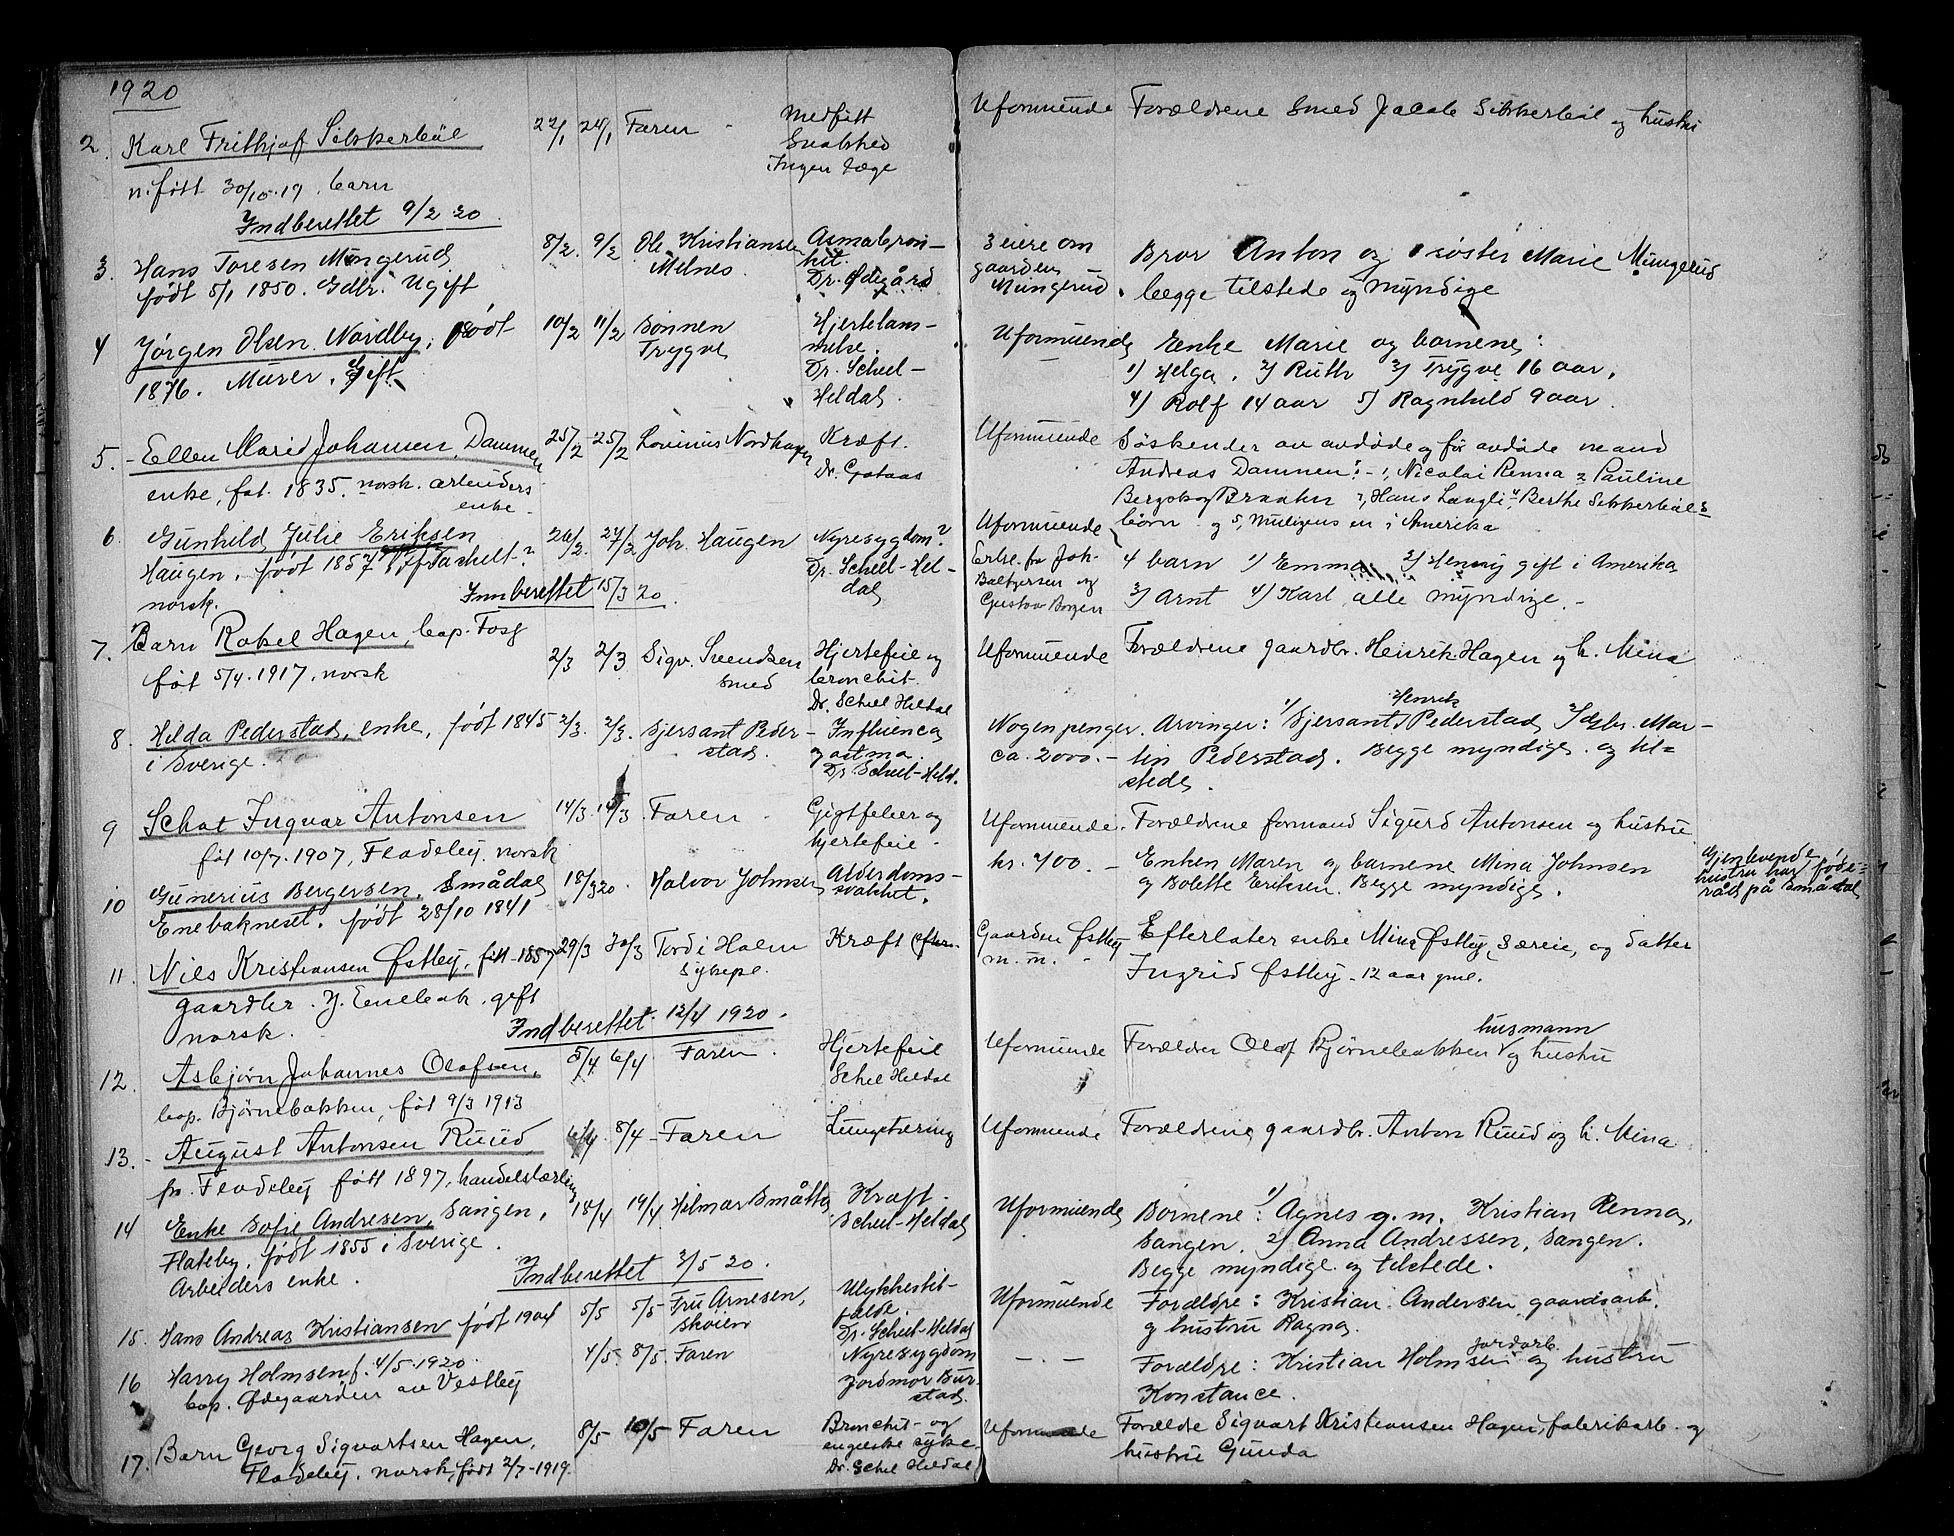 1920
2. Karl Frithjof Sikkerbøl 22/1 24/1 Faren - Medfött Uformuende Forældrene Smed Jacob Sikkerbøl og hustru
Svakhed
Ingen Læge
n. født 30/10-19. barn
Indberettet 9/2 20
3. Hans Toresen Mungerud 8/2. 9/2 Ole Kristiansen Asmabron- 3 eiere om Bror Anton og søster Marie Mungerud
født 5/1 1850. Gdbr. Ugift Melnes. kit. gaarden begge tilstede og myndige
Dr. Ødegård Mungerud.
4 Jørgen Olsen Nordby, født 10/2 11/2 Sønnen Hjertelam- Uformuende Enke Marie og barnene:
1876. Murer. Gift. Trygve melse. 1) Helga. 2) Ruth 3) Trygve 16 aar.
Dr. Scheel- 4) Rolf 14 aar 5) Ragnhild 9 aar.
Heldal.
5. - Ellen Marie Johansen, Dammen 25/2 25/2 Lovinius Nordhagen Kræft. Uformuende Søskender av avdøde og før avdøde mand
enke, føt. 1835. norsk. arbeiders Dr. Gotaas Andreas Dammen: - 1, Nicolai Renna 2 Pauline
enke. Braaten 3, Hans Langli 4 Berthe Sikkerbøls
børn og 5, muligens en i Amerika
6. Gunhild Julie Eriksen 26/2. 27/2 Joh. Haugen Nyresygdom? Uformuende
Haugen. født 1857 Dr. Scheel-Hel- Erke. fra Joh. 4 barn 1) Emma 2) Henny gift i Amerika
norsk. dal Baltzersen og 3) Arnt 4) Karl, alle myndige. -
Innberettet 15/3 20. Gustav Borgen
7. Barn Rakel Hagen, bop. Foss 2/3 2/3 Sigv. Svendsen Hjertefeil og Uformuende Forældrene gaardbr. Henrik Hagen og h. Mina
føt 5/4. 1917, norsk Smed bronchit.
Dr. Scheel Heldal
8. Hilda Pederstad, enke, født 1845 2/3. 2/3. Sjersant Peder- Influenca Nogen penger. Arvinger: 1/ Sjersant Henrik Pederstad, 2 Gdbr. Mar-
i Sverige. stad. og astma. ca. 2000.- tin Pederstad. Begge myndige og til-
Dr Scheel-Held. stede.
9 Schat Ingvar Antonsen 14/3. 14/3 Faren Gigtfeber og Uformuende. Forældrene formand Sigurd Antonsen og hustru
føt 10/7. 1907, Fladeby. norsk hjertefeil.
10 Gunerius Bergersen, Smådal 18/3 20. Halvor Johnsen Alderdoms- kr. 400. - Enken Maren og barnene Mina Johnsen Gjenlevende
Enebakneset. født 28/10 1841 svakhet. og Bolette Eriksen. Begge myndige. hustru har føde-
råd på Smådal
11. Nils Kristiansen Østby, født 1857 29/3 30/3 Tord i Holm Kræft Gaarden Østby Efterlater enke Mina Østby, særeie, og datter
gaardbr. Y. Enebak. gift Sykepl. m.m. Ingrid Østby. 12 aar gml.
norsk.
Indberettet 12/4 1920.
12. Asbjørn Johannes Olafsen, 5/4 6/4 Faren. Hjertefeil Uformuende Forældre Olaf Bjørnebakken husmann og hustru
bop. Bjørnebakken, føt 9/3 1913 Schel Heldal
13. - August Antonsen Ruud 6/4. 8/4 - Faren Lungetæring Uformuende Forældrene gaardbr. Anton Ruud og h. Mina
fr. Fladeby født 1897, handelslærling
14 Enke Sofie Andresen, Sangen, 18/4 19/4 Hilmar Småtta Kræft. Uformuende Børnene: 1) Agnes g. m. Kristian Renna,
Flateby. født 1855 i Sverige. Scheel-Heldal Sangen. 2) Anna Andressen, Sangen.
Arbeiders enke. Begge myndige og tilstede.
Indberettet 3/5 20.
15. Hans Andreas Kristiansen født 1904 5/5 5/5 Fru Arnesen, Ulykkestil- Uformuende Forældre: Kristian Andersen gaardsarb.
Skoien fælde. og hustru Ragna.
Dr. Scheel-Heldal
16 Harry Holmsen f. 4/5. 1920. 4/5. 8/5. Faren Nyresygdom - . - Forældre: Kristian Holmsen jordarb. og hustru
bop. Ødegaarden av Vestby Jordmor Bur- Konstance.
stad.
17. Barn Georg Sigvartsen Hagen, 8/5 10/5 Faren Bronchit- og Uformuende Forældre Sigvart Kristiansen Hagen, fabrikarb. og
Fladeby, norsk, født 2/7-1919. engelske syke- hustru Gunda
Dr. Schel Heldal